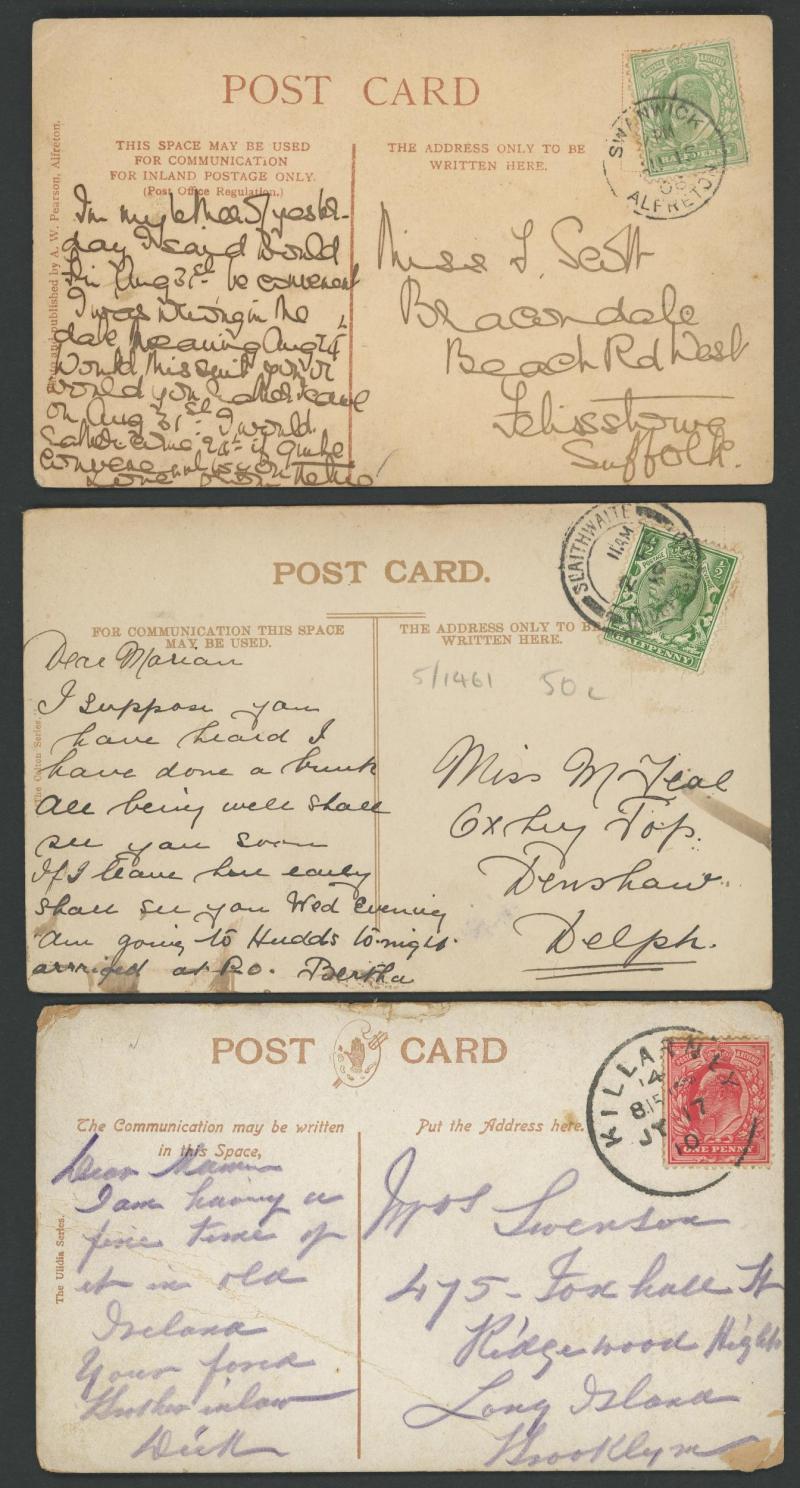 POST CARD
THIS SPACE MAY BE USED
FOR COMMUNICATION
FOR INLAND POSTAGE ONLY.
(Post Office Regulation.)
published by A. W. Pearson, Alfreton.
In my letter of yester-
day I said would
Aug 31st be convenient
I was wrong in the
date meaning Aug 24th
Would this suit you or
would you rather leave
on Aug 31st. I would
rather come 24th if quite
THE ADDRESS ONLY TO BE
WRITTEN HERE.
HALFPENNY
SWANWICK
ALFRETON
Miss Scott
Beacondale
Beach Rd West
Felixstowe
Suffolk.
POST CARD.
FOR COMMUNICATION THIS SPACE
MAY BE USED.
Series.
Dear Marian
I suppose you
have heard I
have done a bunk
All being well shall
see you soon
If I leave here early
shall see you Wed Evening
Am going to Hudds to-night.
arrived at Bertha
THE ADDRESS ONLY TO BE
WRITTEN HERE.
SLAITHWAITE
11 AM
HALFPENNY
5/1461 50c
Miss M Teal
Top.
Denshaw.
Delph.
POST CARD
The Communication may be written
in this Space,
The Ulidia Series.
Dear
I am having a
fine time of
it in old
Ireland
Your fond
Brother inlaw
Dick
Put the Address here.
KILLARNEY
8.15
JY 17
10
ONE PENNY
Mrs Swenson
475- Foxhall St
Ridgewood Hights
Long Island
Brooklyn